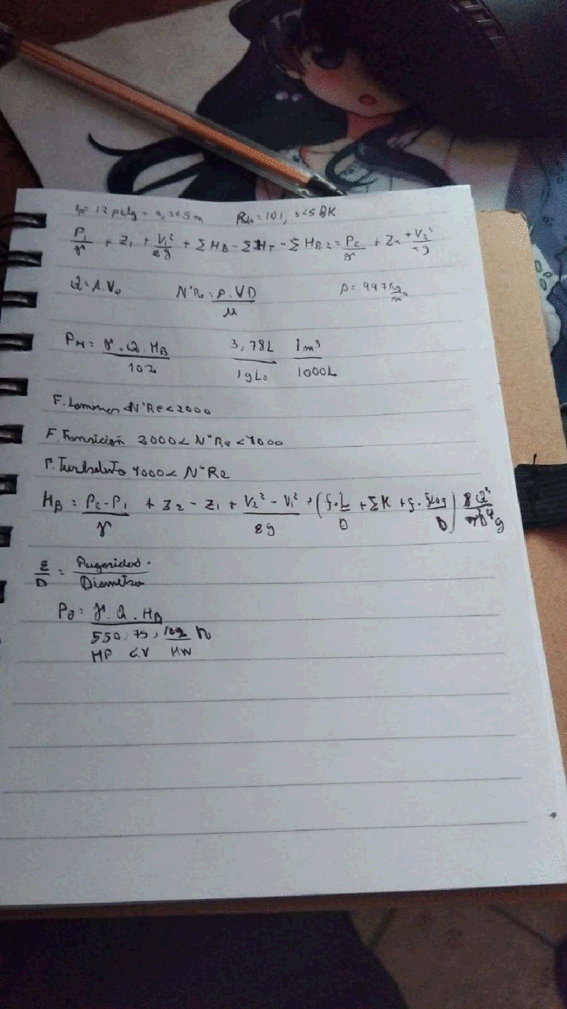 12 pulg = 0,305m
P₁/γ + Z₁ + V₁²/2g + ΣHB - ΣHT - ΣH = P₂/γ + Z₂ + V₂²/2g
Q = A.V N°Re = ρ.VD/μ ρ = 997
PH = γ.Q.HB/102 3,78L/1gl 1m³/1000L
F. Laminar N°Re<2000
F. Transición 2000< N°Re <4000
F. Turbulento 4000< N°Re
HB = P₂-P₁/γ + Z₂ - Z₁ + V₂² - V₁²/2g + (f.L/D + ΣK + f. /D) 8Q²/π²D⁴g
E/D = Rugosidad/Diametro
PB = γ.Q.HB
550.75, n
HP C.V KW